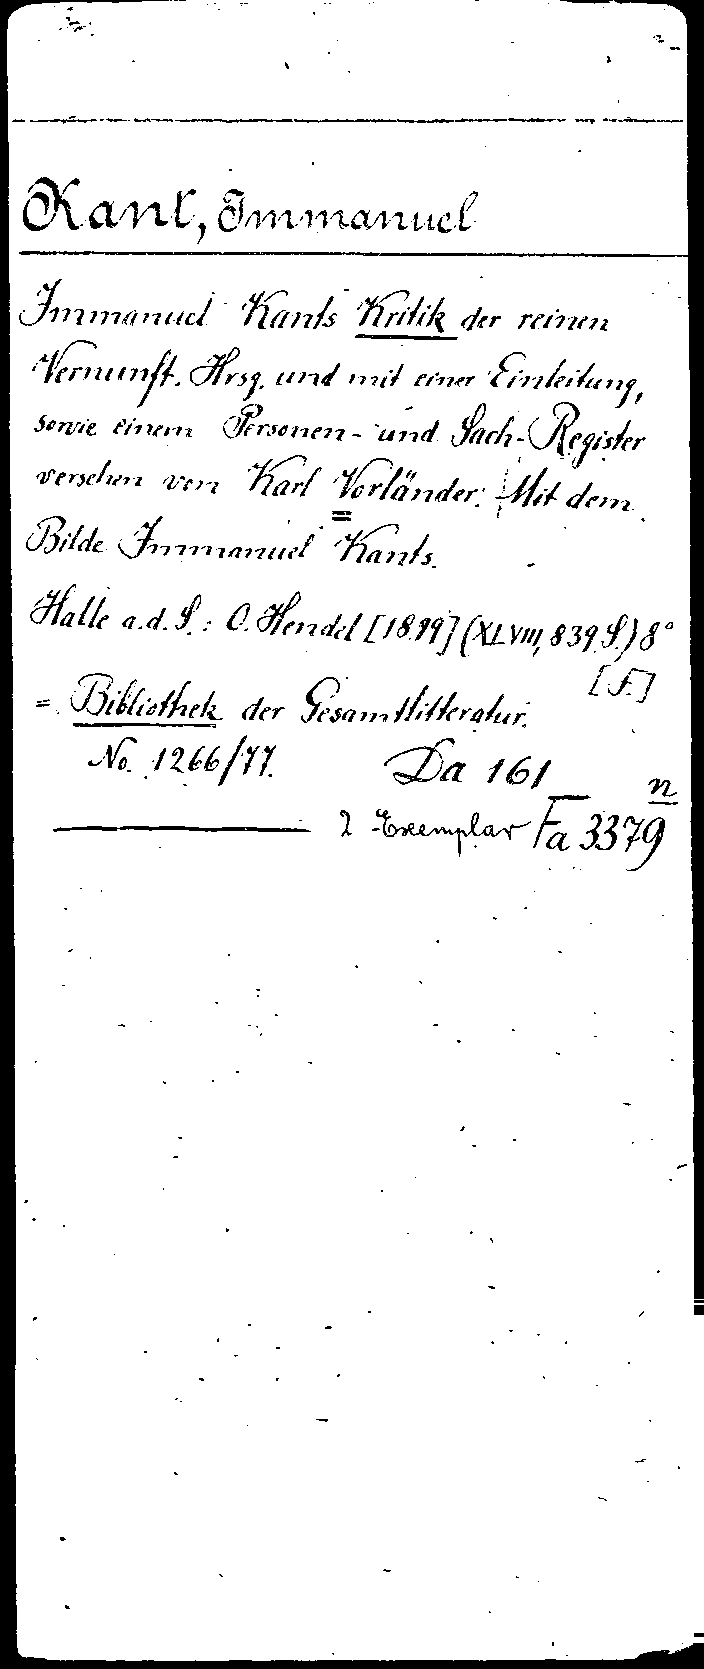 Kant, Immanuel
Immanuel Kants Kritik der reinen
Vernunft. Hrsg. und mit einer Einleitung,
sowie einem Personen- und Sach-Register
versehen von Karl Vorländer. Mit dem
Bilde Immanuel Kants.
Halle a. d. S.: O. Hendel [1899] (XLVIII, 839 S.) 8°
[F.]
= Bibliothek der Gesamtlitteratur.
No. 1266/77. Da 161 n
2 Exemplar Fa 3379